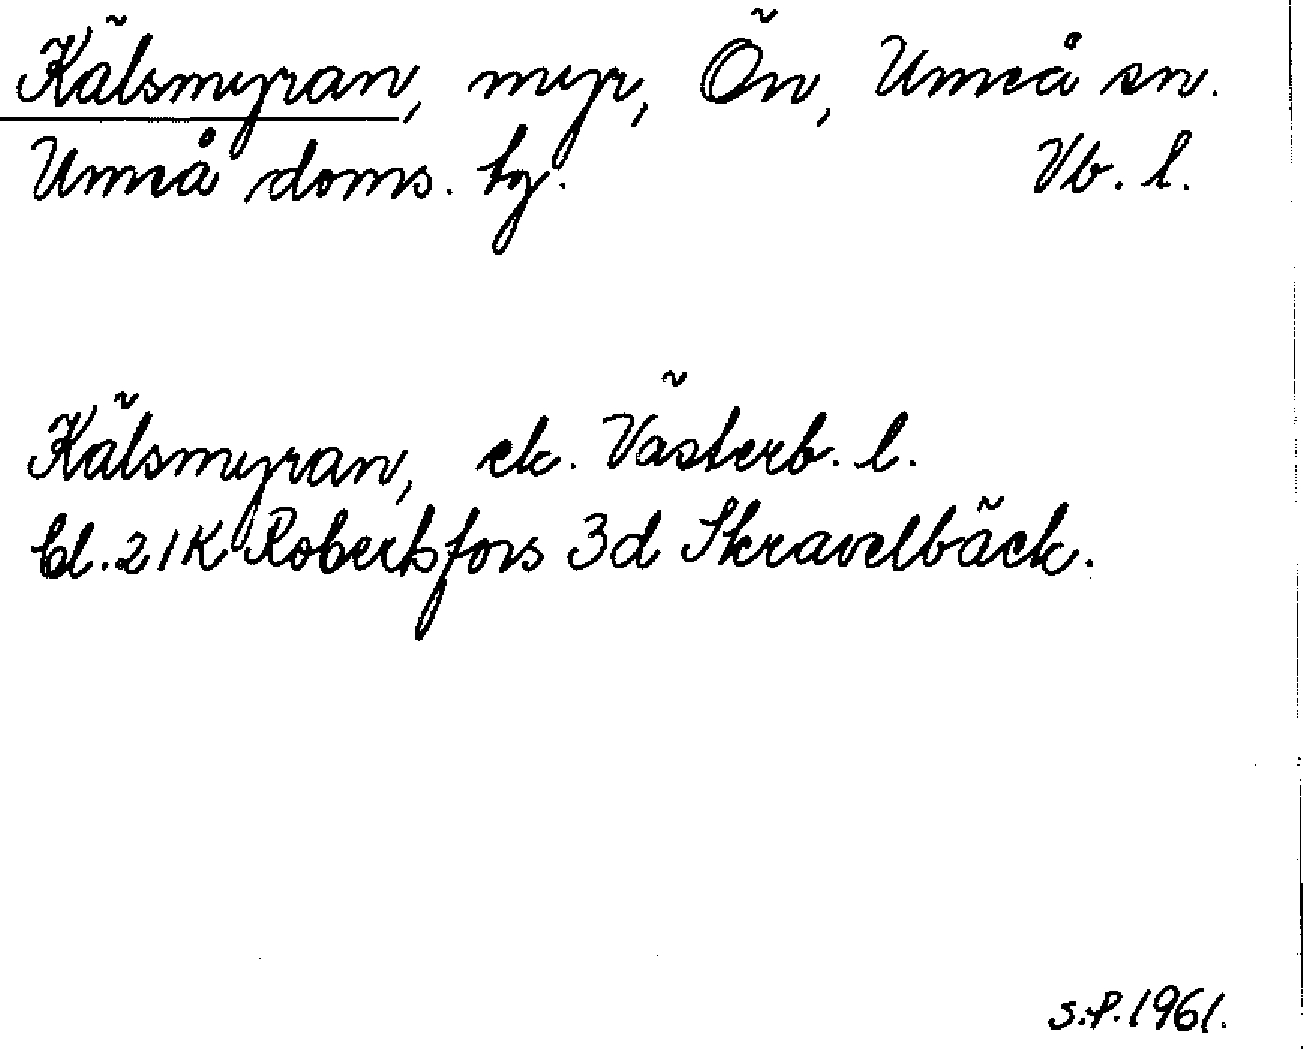 Kälsmyran, myr, Ön, Umeå sn.
Umeå doms. tg. Vb. l.
Kälsmyran, ek. Västerb. l.
bl. 21K Robertsfors 3d Skravelbäck.
S.P. 1961.